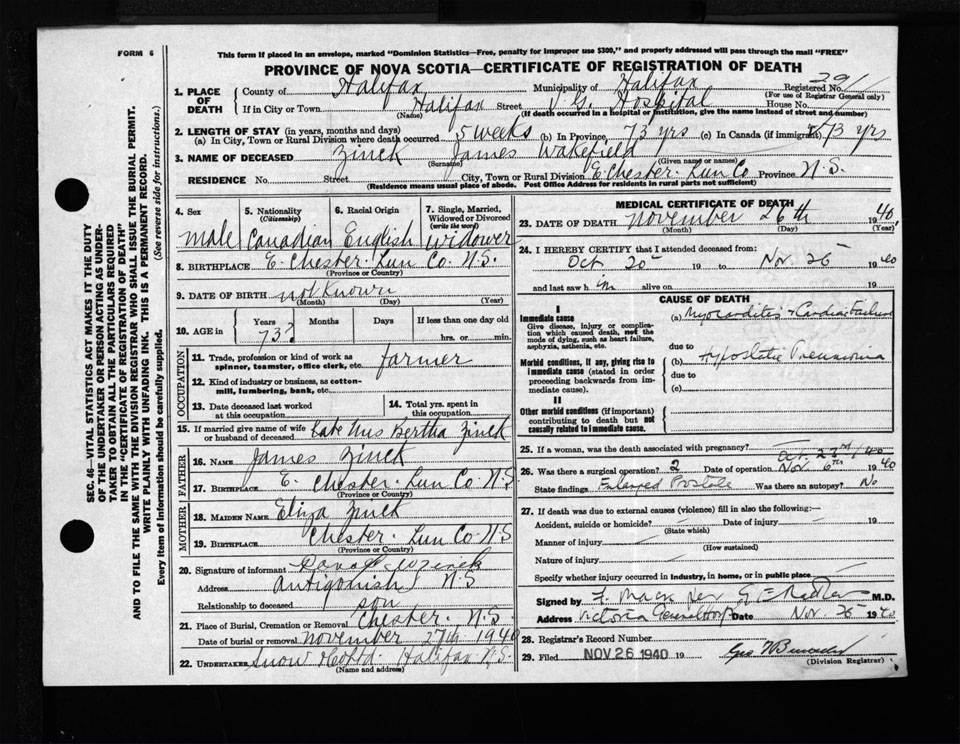 FORM 6
This form if placed in an envelope, marked "Dominion Statistics—Free, penalty for improper use $300," and properly addressed will pass through the mail "FREE"
PROVINCE OF NOVA SCOTIA—CERTIFICATE OF REGISTRATION OF DEATH
1. PLACE OF DEATH
County of Halifax Municipality of Halifax Registered No. 291
(For use of Registrar General only)
If in City or Town Halifax Street V.G. Hospital House No.
(Name) (If death occurred in a hospital or institution, give the name instead of street and number)
2. LENGTH OF STAY (in years, months and days)
(a) In City, Town or Rural Division where death occurred 5 weeks (b) In Province 73 yrs (c) In Canada (if immigrant) 73 yrs
3. NAME OF DECEASED Zinck James Wakefield
(Surname) (Given name or names)
RESIDENCE No. Street City, Town or Rural Division E. Chester. Lun Co Province N.S.
(Residence means usual place of abode. Post Office Address for residents in rural parts not sufficient)
4. Sex 5. Nationality (Citizenship) 6. Racial Origin 7. Single, Married, Widowed or Divorced (write the word)
Male Canadian English Widower
8. BIRTHPLACE E. Chester. Lun Co. N.S.
(Province or Country)
9. DATE OF BIRTH not Known
(Month) (Day) (Year)
10. AGE in Years Months Days If less than one day old
73? hrs. or min.
OCCUPATION
11. Trade, profession or kind of work as spinner, teamster, office clerk, etc. farmer
12. Kind of industry or business, as cotton-mill, lumbering, bank, etc.
13. Date deceased last worked at this occupation
14. Total yrs. spent in this occupation
15. If married give name of wife or husband of deceased Late Mrs Bertha Zinck
FATHER
16. NAME James Zinck
17. BIRTHPLACE E. Chester. Lun Co. N.S
(Province or Country)
MOTHER
18. MAIDEN NAME Eliza Zinck
19. BIRTHPLACE Chester. Lun Co N.S
(Province or Country)
20. Signature of informant Zinck
Address Antigonish N.S
Relationship to deceased son
21. Place of Burial, Cremation or Removal Chester. N.S.
Date of burial or removal November 27th 1940
22. UNDERTAKER Snow Halifax N.S.
(Name and address)
MEDICAL CERTIFICATE OF DEATH
23. DATE OF DEATH November 26th 1940
(Month) (Day) (Year)
24. I HEREBY CERTIFY that I attended deceased from:
Oct 20 19 to Nov. 25 1940
and last saw h im alive on 19
CAUSE OF DEATH
I
Immediate cause
Give disease, injury or complication which caused death, not the mode of dying, such as heart failure, asphyxia, asthenia, etc.
(a) Myocarditis & Cardiac Failure
due to
Morbid conditions, if any, giving rise to immediate cause (stated in order proceeding backwards from immediate cause).
(b) Hypostatic Pneumonia
due to
(c)
II
Other morbid conditions (if important) contributing to death but not causally related to immediate cause.
25. If a woman, was the death associated with pregnancy?
26. Was there a surgical operation? 2 Date of operation Nov. 6th 1940
State findings Enlarged Prostate Was there an autopsy? No
27. If death was due to external causes (violence) fill in also the following:—
Accident, suicide or homicide? Date of injury 19
(State which)
Manner of injury
(How sustained)
Nature of injury
Specify whether injury occurred in industry, in home, or in public place
Signed by M.D.
Address Victoria Date Nov. 25 1940
28. Registrar's Record Number
29. Filed NOV 26 1940 19
(Division Registrar)
SEC. 46—VITAL STATISTICS ACT MAKES IT THE DUTY
OF THE UNDERTAKER OR PERSON ACTING AS UNDERTAKER TO OBTAIN ALL THE PARTICULARS REQUIRED
IN THE "CERTIFICATE OF REGISTRATION OF DEATH"
AND TO FILE THE SAME WITH THE DIVISION REGISTRAR WHO SHALL ISSUE THE BURIAL PERMIT.
WRITE PLAINLY WITH UNFADING INK. THIS IS A PERMANENT RECORD.
Every item of information should be carefully supplied. (See reverse side for instructions.)